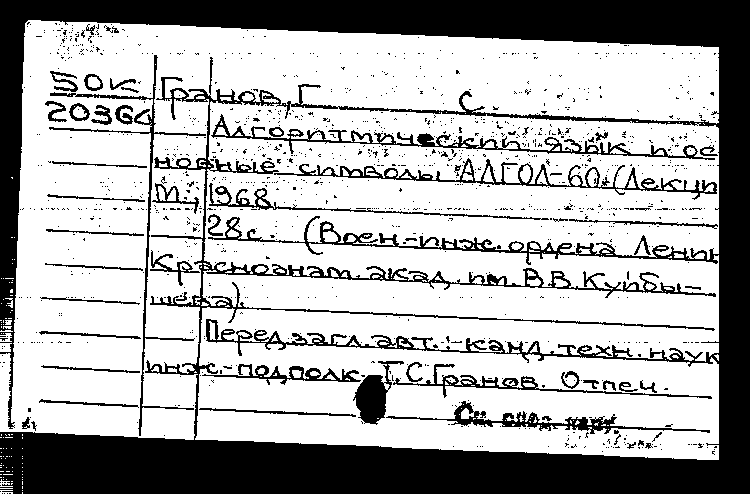 БОК Гранов, Г С.
20364
Алгоритмический язык и ос
новные символы АЛГОЛ-60. (Лекци
М., 1968.
28с. (Воен.-инж. ордена Ленин
Краснознам. акад. им. В.В. Куйбы-
шева).
Перед загл. авт.: канд. техн. наук
инж.-подполк. Г.С. Гранов. Отпеч.
См. след. карт.